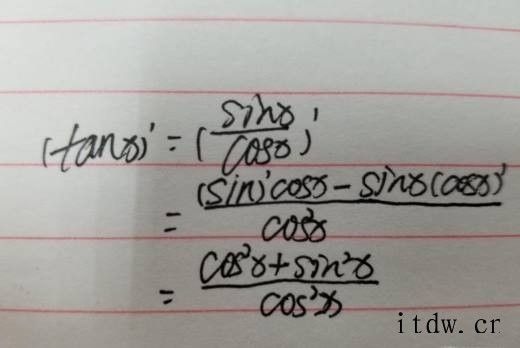 (tanx)' = (sinx/cosx)'
= (sin)'cosx - sinx(cosx)'/cos²x
= cos²x + sin²x/cos²x
itdw.cr